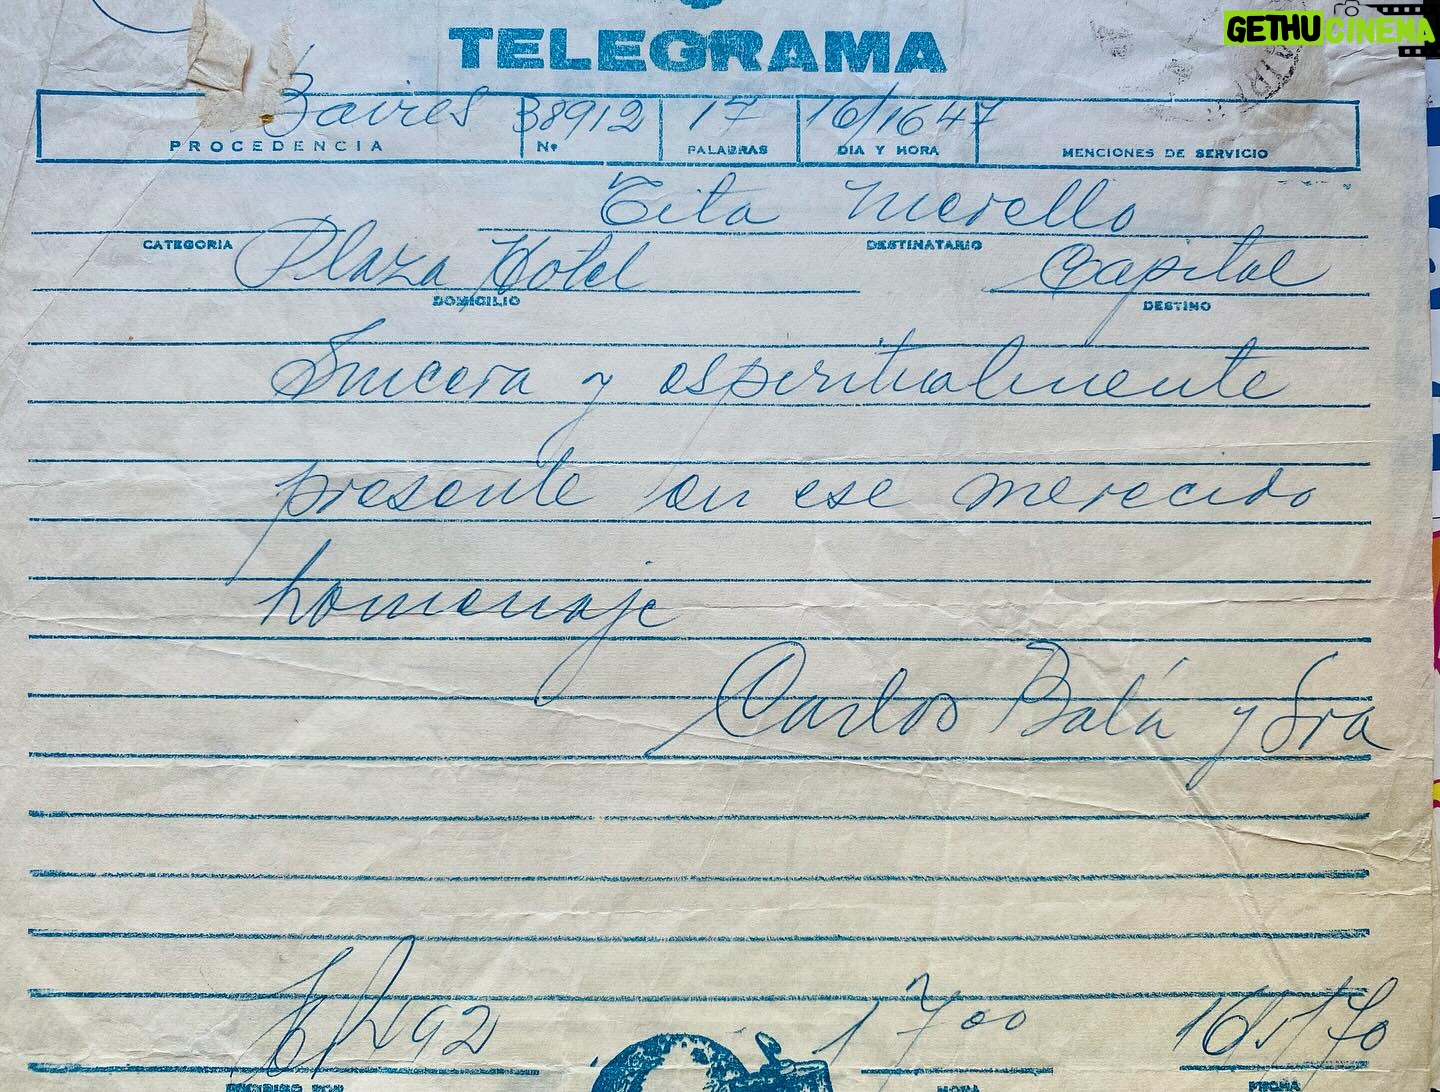 GETHUCINEMA
TELEGRAMA
Baires 38912 17 16/1647
PROCEDENCIA Nº PALABRAS DIA Y HORA MENCIONES DE SERVICIO
Tita Merello
CATEGORIA DESTINATARIO
Plaza Hotel Capital
DOMICILIO DESTINO
Sincera y espiritualmente
presente en ese merecido
homenaje
Carlos Balá y Sra
92 1700 16/5/70
RECIBIDO POR HORA FECHA